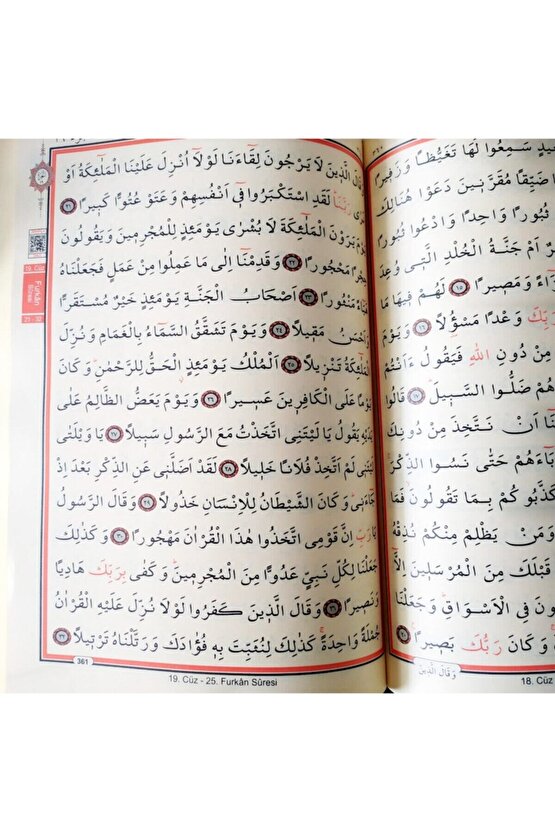 وَقَالَ الَّذِينَ لَا يَرْجُونَ لِقَاءَنَا لَوْلَا أُنْزِلَ عَلَيْنَا الْمَلٰئِكَةُ أَوْ
نَرٰى رَبَّنَا لَقَدِ اسْتَكْبَرُوا فِي أَنْفُسِهِمْ وَعَتَوْ عُتُوًّا كَبِيرًا ٢١
يَوْمَ يَرَوْنَ الْمَلٰئِكَةَ لَا بُشْرٰى يَوْمَئِذٍ لِلْمُجْرِمِينَ وَيَقُولُونَ
حِجْرًا مَحْجُورًا ٢٢ وَقَدِمْنَا إِلٰى مَا عَمِلُوا مِنْ عَمَلٍ فَجَعَلْنَاهُ
هَبَاءً مَنْثُورًا ٢٣ أَصْحَابُ الْجَنَّةِ يَوْمَئِذٍ خَيْرٌ مُسْتَقَرًّا
وَأَحْسَنُ مَقِيلًا ٢٤ وَيَوْمَ تَشَقَّقُ السَّمَاءُ بِالْغَمَامِ وَنُزِّلَ
الْمَلٰئِكَةُ تَنْزِيلًا ٢٥ اَلْمُلْكُ يَوْمَئِذٍ الْحَقُّ لِلرَّحْمٰنِ وَكَانَ
يَوْمًا عَلَى الْكَافِرِينَ عَسِيرًا ٢٦ وَيَوْمَ يَعَضُّ الظَّالِمُ عَلٰى
يَدَيْهِ يَقُولُ يَا لَيْتَنِي اتَّخَذْتُ مَعَ الرَّسُولِ سَبِيلًا ٢٧ يَا وَيْلَتٰى
لَيْتَنِي لَمْ أَتَّخِذْ فُلَانًا خَلِيلًا ٢٨ لَقَدْ أَضَلَّنِي عَنِ الذِّكْرِ بَعْدَ إِذْ
جَاءَنِي وَكَانَ الشَّيْطَانُ لِلْإِنْسَانِ خَذُولًا ٢٩ وَقَالَ الرَّسُولُ
يَا رَبِّ إِنَّ قَوْمِي اتَّخَذُوا هٰذَا الْقُرْاٰنَ مَهْجُورًا ٣٠ وَكَذٰلِكَ
جَعَلْنَا لِكُلِّ نَبِيٍّ عَدُوًّا مِنَ الْمُجْرِمِينَ وَكَفٰى بِرَبِّكَ هَادِيًا
وَنَصِيرًا ٣١ وَقَالَ الَّذِينَ كَفَرُوا لَوْلَا نُزِّلَ عَلَيْهِ الْقُرْاٰنُ
جُمْلَةً وَاحِدَةً كَذٰلِكَ لِنُثَبِّتَ بِهِ فُؤَادَكَ وَرَتَّلْنَاهُ تَرْتِيلًا ٣٢
361
19. Cüz - 25. Furkân Sûresi
19. Cüz
Furkân
Sûresi
21 - 32
سَمِعُوا لَهَا تَغَيُّظًا وَزَفِيرًا
ضَيِّقًا مُقَرَّنِينَ دَعَوْا هُنَالِكَ
ثُبُورًا وَاحِدًا وَادْعُوا ثُبُورًا
أَمْ جَنَّةُ الْخُلْدِ الَّتِي وُعِدَ
وَمَصِيرًا ١٥ لَهُمْ فِيهَا مَا
رَبِّكَ وَعْدًا مَسْؤُلًا ١٦ وَيَوْمَ
مِنْ دُونِ اللهِ فَيَقُولُ ءَأَنْتُمْ
هُمْ ضَلُّوا السَّبِيلَ ١٧ قَالُوا
أَنْ نَتَّخِذَ مِنْ دُونِكَ
حَتّٰى نَسُوا الذِّكْرَ
كَذَّبُوكُمْ بِمَا تَقُولُونَ فَمَا
وَمَنْ يَظْلِمْ مِنْكُمْ نُذِقْهُ
قَبْلَكَ مِنَ الْمُرْسَلِينَ إِلَّا
فِي الْأَسْوَاقِ وَجَعَلْنَا
وَكَانَ رَبُّكَ بَصِيرًا ٢٠
وَقَالَ الَّذِينَ
18. Cüz